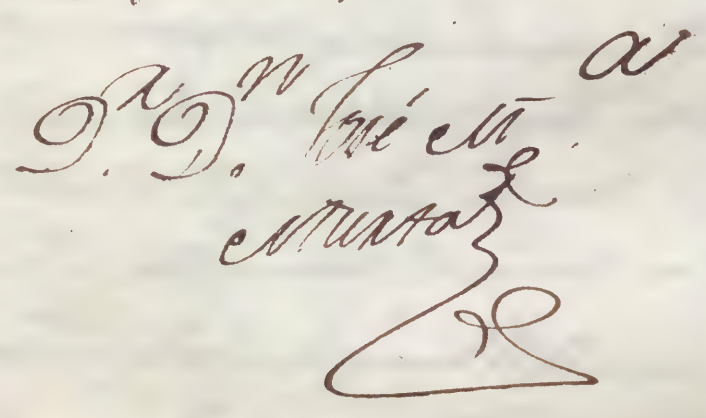 D.ʳ D.ⁿ José M.ª
Murta